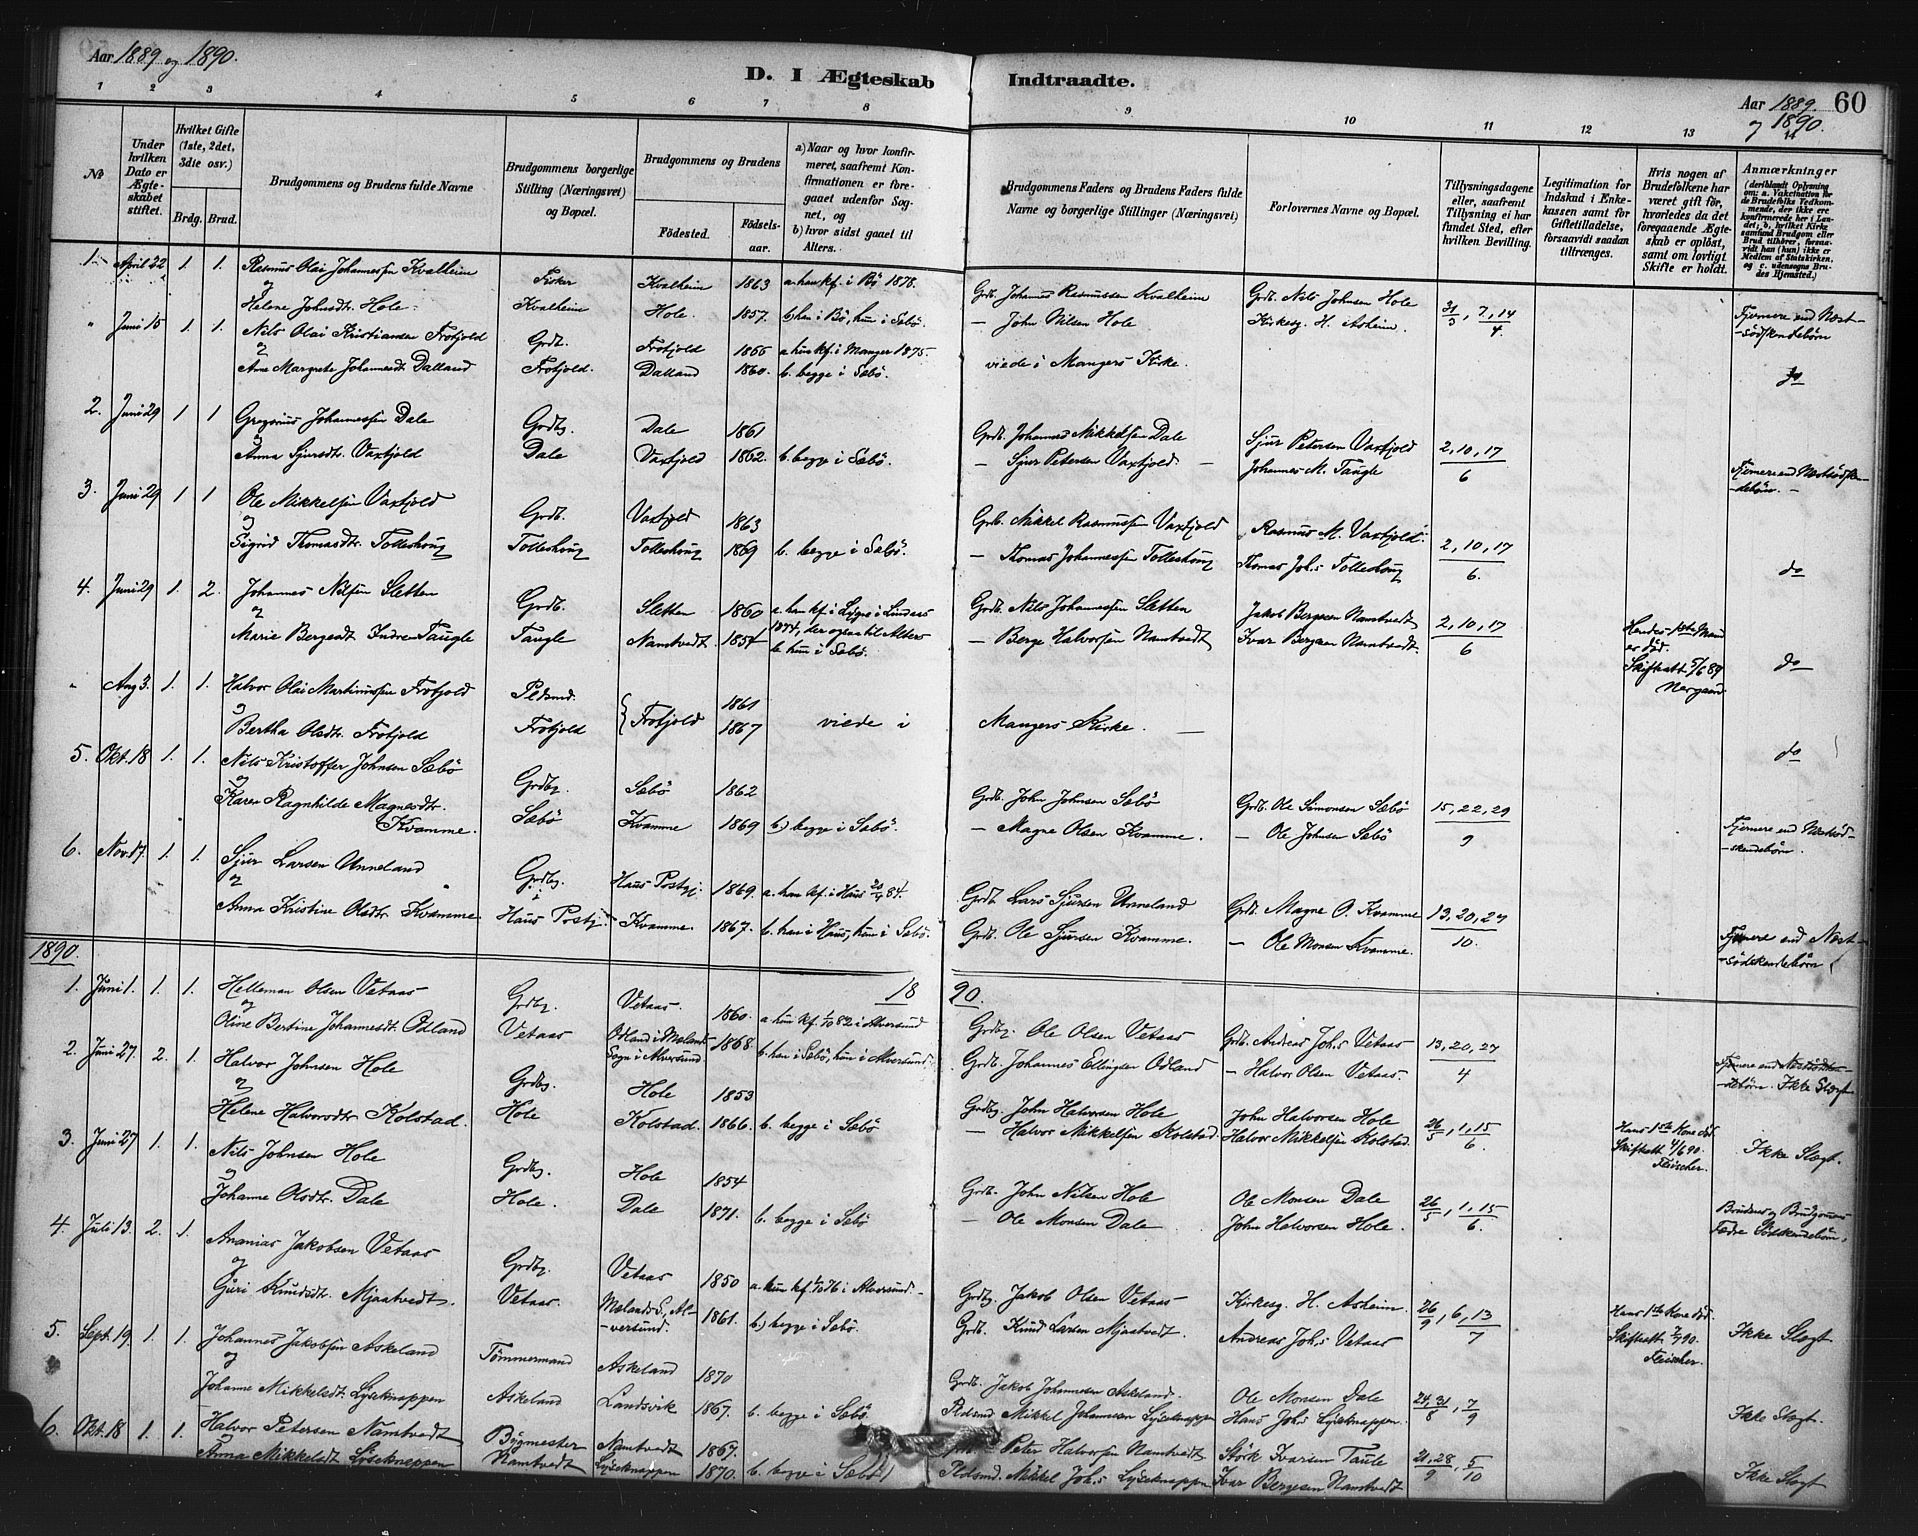 Aar 1889 og 1890.
D. I Ægteskab Indtraadte.
Aar 1889. og 1890. 60
1 2 3 4 5 6 7 8 9 10 11 12 13 14
No
Under hvilken Dato er Ægteskabet stiftet.
Hvilket Gifte (1ste, 2det, 3die osv.)
Brdg. Brud.
Brudgommens og Brudens fulde Navne
Brudgommens borgerlige Stilling (Næringsvei) og Bopæl.
Brudgommens og Brudens
Fødested. Fødselsaar.
a) Naar og hvor konfirmeret, saafremt Konfirmationen er foregaaet udenfor Sognet, og
b) hvor sidst gaaet til Alters.
Brudgommens Faders og Brudens Faders fulde Navne og borgerlige Stillinger (Næringsvei)
Forlovernes Navne og Bopæl.
Tillysningsdagene eller, saafremt Tillysning ei har fundet Sted, efter hvilken Bevilling.
Legitimation for Indskud i Enkekassen samt for Giftetilladelse, forsaavidt saadan tiltrænges.
Hvis nogen af Brudefolkene har været gift før, hvorledes da det foregaaende Ægteskab er opløst, samt om lovligt Skifte er holdt.
Anmærkninger
(deriblandt Oplysning om: a. Vakcination for de Brudefolks Vedkommende, der ikke ere konfirmerede her i Landet; b. hvilket Kirkesamfund Brudgom eller Brud tilhører, forsaavidt han (hun) ikke er Medlem af Statskirken, og c. udensogns Brudes Hjemsted.)
1. April 22 1. 1. Rasmus Olai Johannessen Kvalheim Fisker Kvalheim 1863 a. han kf. i Bö 1878. Grdb. Johannes Rasmussen Kvalheim Grdb. Nils Johnsen Hole 31/3, 7, 14/4
og
Helene Johnsdtr. Hole. Kvalheim Hole. 1857. b) han i Bö, hun i Sæbö. — John Nilsen Hole Kirkesg. H. Asheim. Fjernere end Næstsödskendebörn
" Juni 15 1. 1. Nils Olai Kristiansen Frotjold Grdb. Frotjold 1866 a hun kf. i Manger 1875.
og
Ane Margrete Johannesdtr Dalland Frotjold. Dalland 1860. b. begge i Sæbö. viede i Mangers Kirke. do
2. Juni 29 1. 1 Gregorius Johannessen Dale Grdbg. Dale 1861 Grdb. Johannes Mikkelsen Dale Sjur Petersen Vaxtjold 2, 10, 17/6
og
Anna Sjursdtr. Vaxtjold Dale Vaxtjold 1862. b. begge i Sæbö. — Sjur Petersen Vaxtjold. — Johannes M. Taugle Fjernere end Næstsödskendebörn. —
3. Juni 29 1. 1 Ole Mikkelsen Vaxtjold Grdb. Vaxtjold 1863 Grdb. Mikkel Rasmussen Vaxtjold Rasmus M. Vaxtjold. 2, 10, 17/6.
og
Sigrid Thomasdtr. Tolleshaug Tolleshaug Tolleshaug 1869 b. begge i Sæbö. — Thomas Johannessen Tolleshaug Thomas Joh.s Tolleshaug do
4. Juni 29 1. 2. Johannes Nilsen Sletten Grdb. Sletten 1860 a. han kf. i Lygre i Lindaas 1874, der ogsaa til Alters Grdb. Nils Johannessen Sletten Jakob Bergesen Namtvedt 2, 10, 17/6
og
Marie Bergesdt Indre Taugle Taugle Namtvedt. 1854 b hun i Sæbö. — Berge Halvorsen Namtvedt Ivar Bergesen Namtvedt. Hendes 1ste Mand er död. Skifteatt 5/6 89 Norgaard do
" Aug 3. 1. 1. Halvor Olai Martinussen Frotjold Pldsmd. 1861
og
Bertha Olsdtr. Frotjold Frotjold Frotjold 1867 viede i Mangers Kirke. — do
5. Okt. 18 1. 1. Nils Kristoffer Johnsen Sæbö Grdbg. Sæbö 1862 Grdb. John Johnsen Sæbö Grdb. Ole Simonsen Sæbö 15, 22, 29/9
og
Karen Ragnhilde Magnesdtr. Kvamme. Sæbö Kvamme 1869 b) begge i Sæbö. — Magne Olsen Kvamme. — Ole Johnsen Sæbö Fjernere end Næstsödskendebörn.
6. Nov. 17. 1. 1. Sjur Larsen Unneland Grdbg. i Haus Postgj. 1869. a. han kf. i Haus 20/4 84. Grdb. Lars Sjursen Unneland Grdb. Magne O. Kvamme 13, 20, 27/10.
og
Anna Kristine Olsdtr Kvamme. Haus Postgj. Kvamme. 1867. b. han i Haus, hun i Sæbö. Grdb. Ole Sjursen Kvamme. — Ole Monsen Kvamme. Fjernere end Næstsödskendebörn
1890. 18 90.
1. Juni 1. 1. 1. Helleman Olsen Vetaas Grdbg. Vetaas. 1860. a hun kf. 1/10 82 i Alversund Grdbg. Ole Olsen Vetaas Grdb. Andreas Joh.s Vetaas 13, 20, 27/4
og
Oline Bertine Johannesdt Odland Vetaas Odland i Mælands Sogn i Alversund. 1868. b. han i Sæbö, hun i Alversund. Grdb. Johannes Ellingsen Odland — Halvor Olsen Vetaas. Fjernere end Næstsödskendebörn. Ikke Slægt
2. Juni 27. 2. 1. Halvor Johnsen Hole Grdbg. Hole 1853 Grdbg. John Halvorsen Hole John Halvorsen Hole 26/5, 1, 15/6.
og
Helene Halvorsdtr Kolstad. Hole Kolstad. 1866. b. begge i Sæbö — Halvor Mikkelsen Kolstad. Halvor Mikkelsen Kolstad. Hans 1ste Kone död Skifteatt 4/6 90. Fleischer. Ikke Slægt.
3. Juni 27 1. 1. Nils Johnsen Hole Grdbg. Hole 1854 Grdb. John Nilsen Hole Ole Monsen Dale 26/5, 1, 15/6.
og
Johanne Olsdtr. Dale Hole. Dale 1871. b. begge i Sæbö — Ole Monsen Dale John Halvorsen Hole. Brudens og Brudgommens Fædre Södskendebörn.
4. Juli 13. 2. 1. Ananias Jakobsen Vetaas Grdbg. Vetaas 1850 a. hun kf. 1/10 76 i Alversund. Grdbg. Jakob Olsen Vetaas Kirkesg. H. Asheim. 26/9, 6, 13/7
og
Guri Knudsdtr. Mjaatvedt. Vetaas. Mælands S., Alversund. 1861. b) begge i Sæbö. Grdb. Knud Larsen Mjaatvedt. Andreas Joh.s Vetaas Hans 1ste Kone död. Skifteatt 2/7 90. Fleischer. Ikke Slægt
5. Sept. 19 1. 1. Johannes Jakobsen Askeland Tömmermand Askeland 1870 Grdb. Jakob Johannesen Askeland. Ole Monsen Dale 24, 31/8, 7/9
og
Johanne Mikkelsdt. Lyseknappen Askeland Landsvik 1867. b. begge i Sæbö. Pldsmd Mikkel Johannesen Lyseknappen Hans Joh.s Lyseknappen. Ikke Slægt.
6. Okt. 18 1. 1. Halvor Petersen Namtvedt Bygmester Namtvedt 1867. Peter Halvorsen Namtvedt Störk Ivarsen Taule 21, 28/9, 5/10
Anna Mikkelsdt Lyseknappen Namtvedt Lyseknappen 1870. b. begge i Sæbö Pldsmd. Mikkel Joh.s Lyseknappen Ivar Bergesen Namtvedt Ikke Slægt